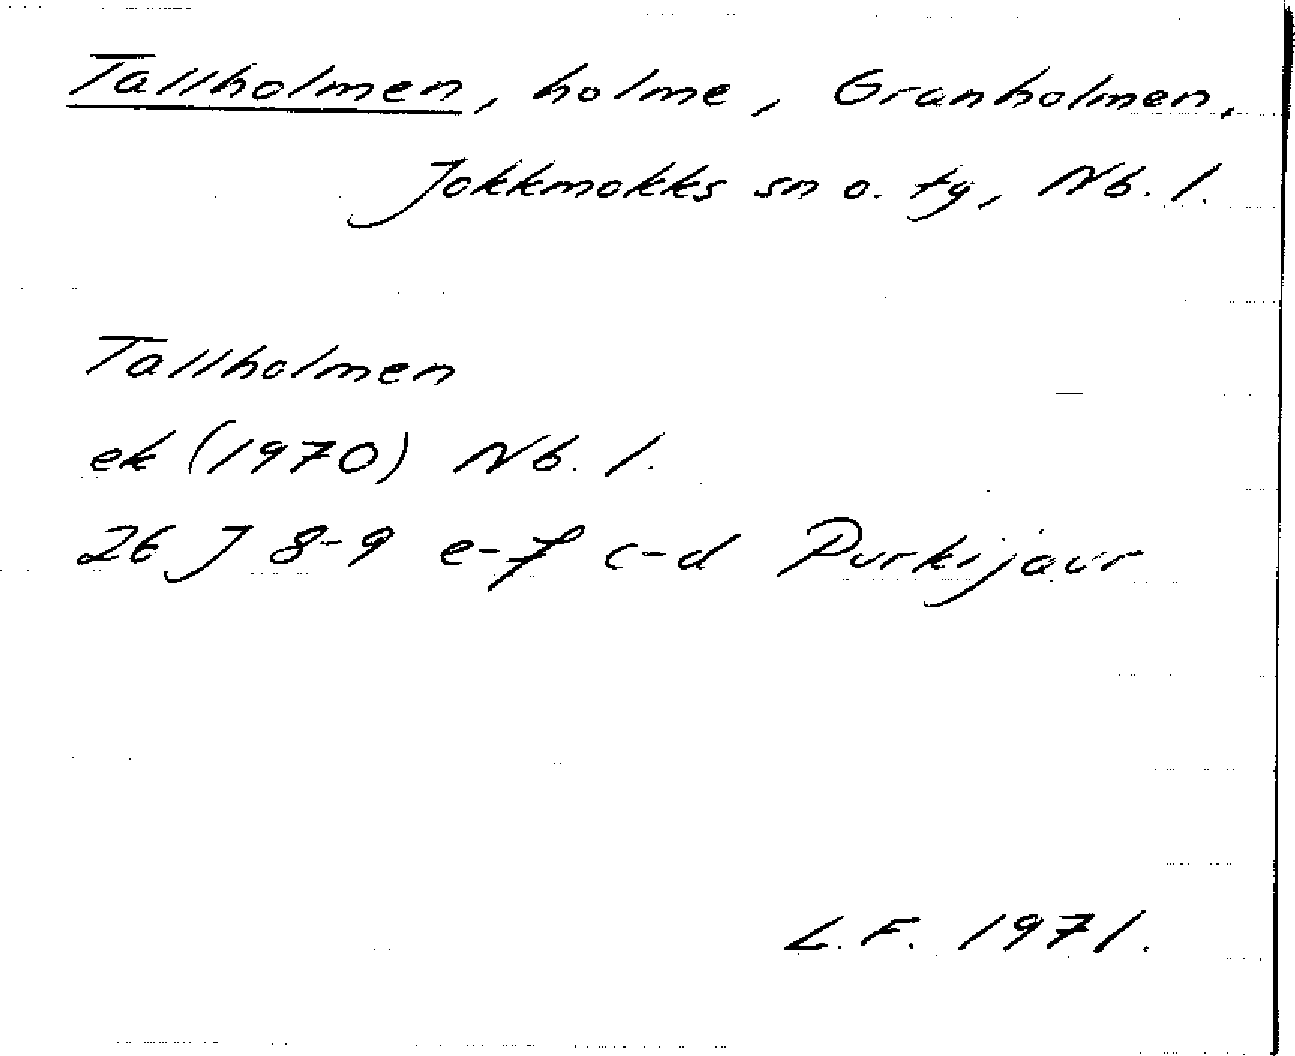 Tallholmen, holme, Granholmen,
Jokkmokks sn o. tg, Nb. l.
Tallholmen
ek (1970) Nb. l.
26 J 8-9 e-f c-d Purkijaur
L. F. 1971.